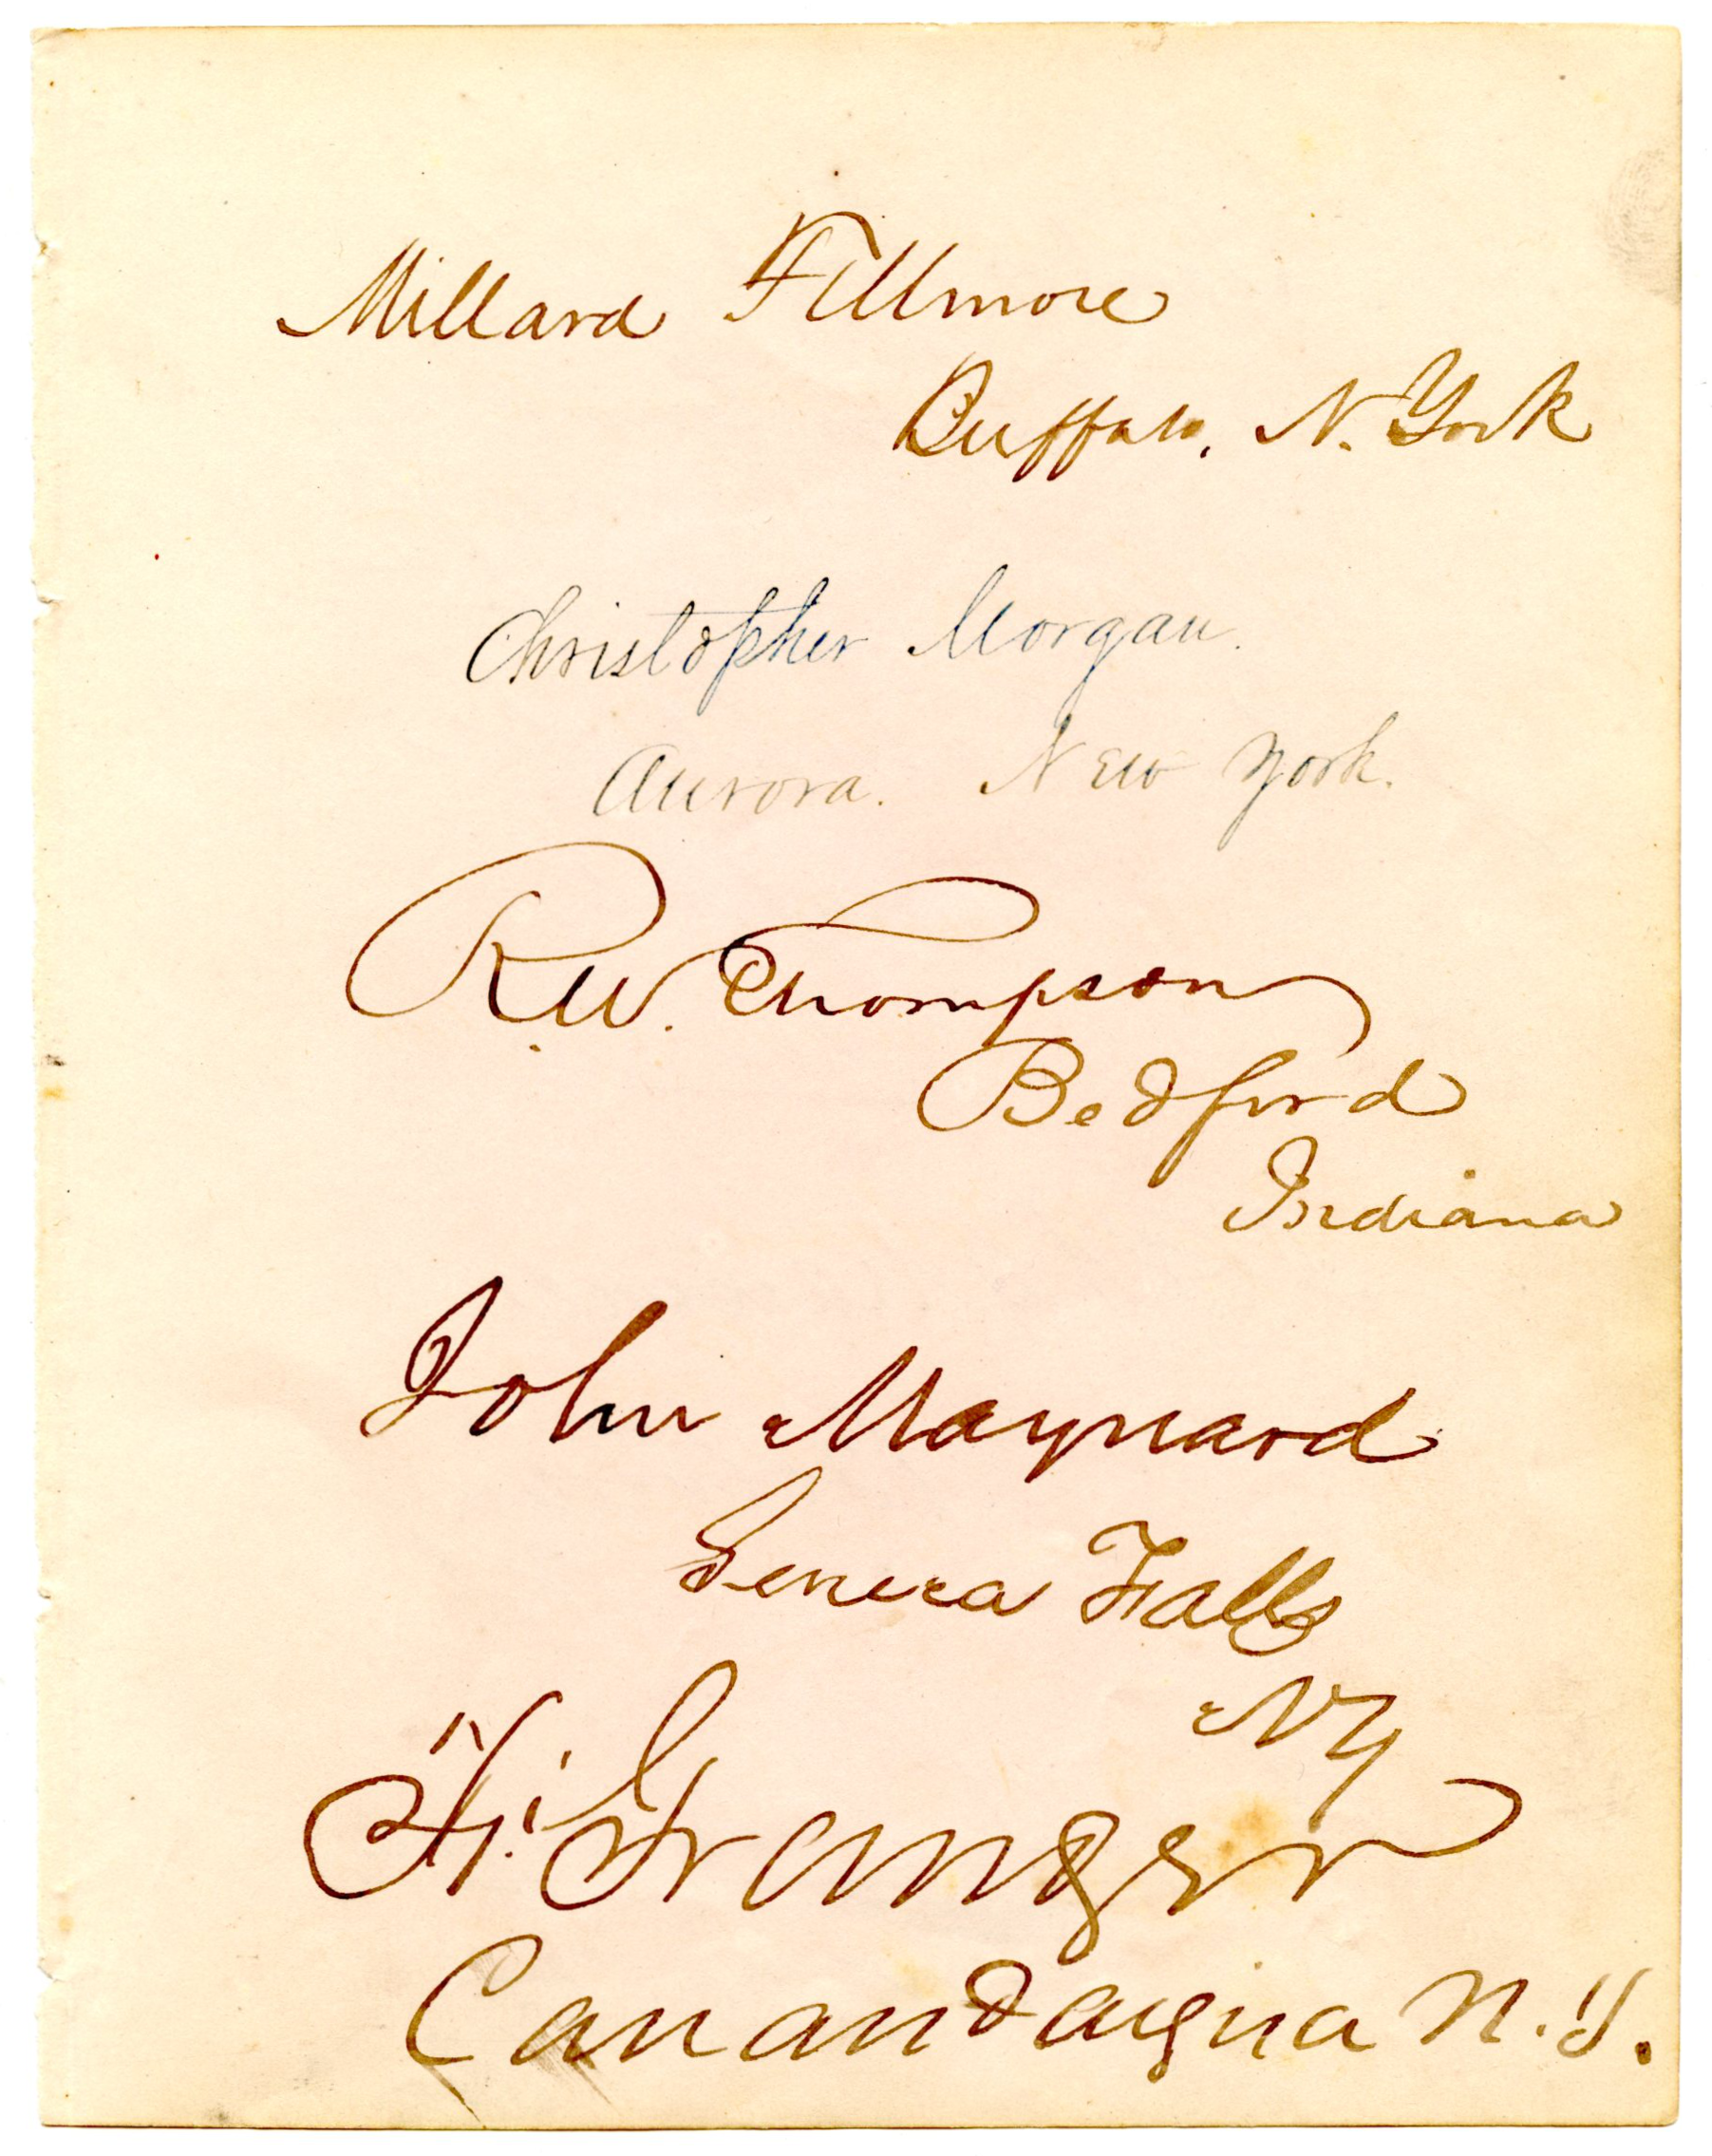 Millard Fillmore
Buffalo, N. York
Christopher Morgan.
Aurora. New York.
R.W. Thompson
Bedford
Indiana
John Maynard
Seneca Falls
NY
F. Granger
Canandaigua N.Y.